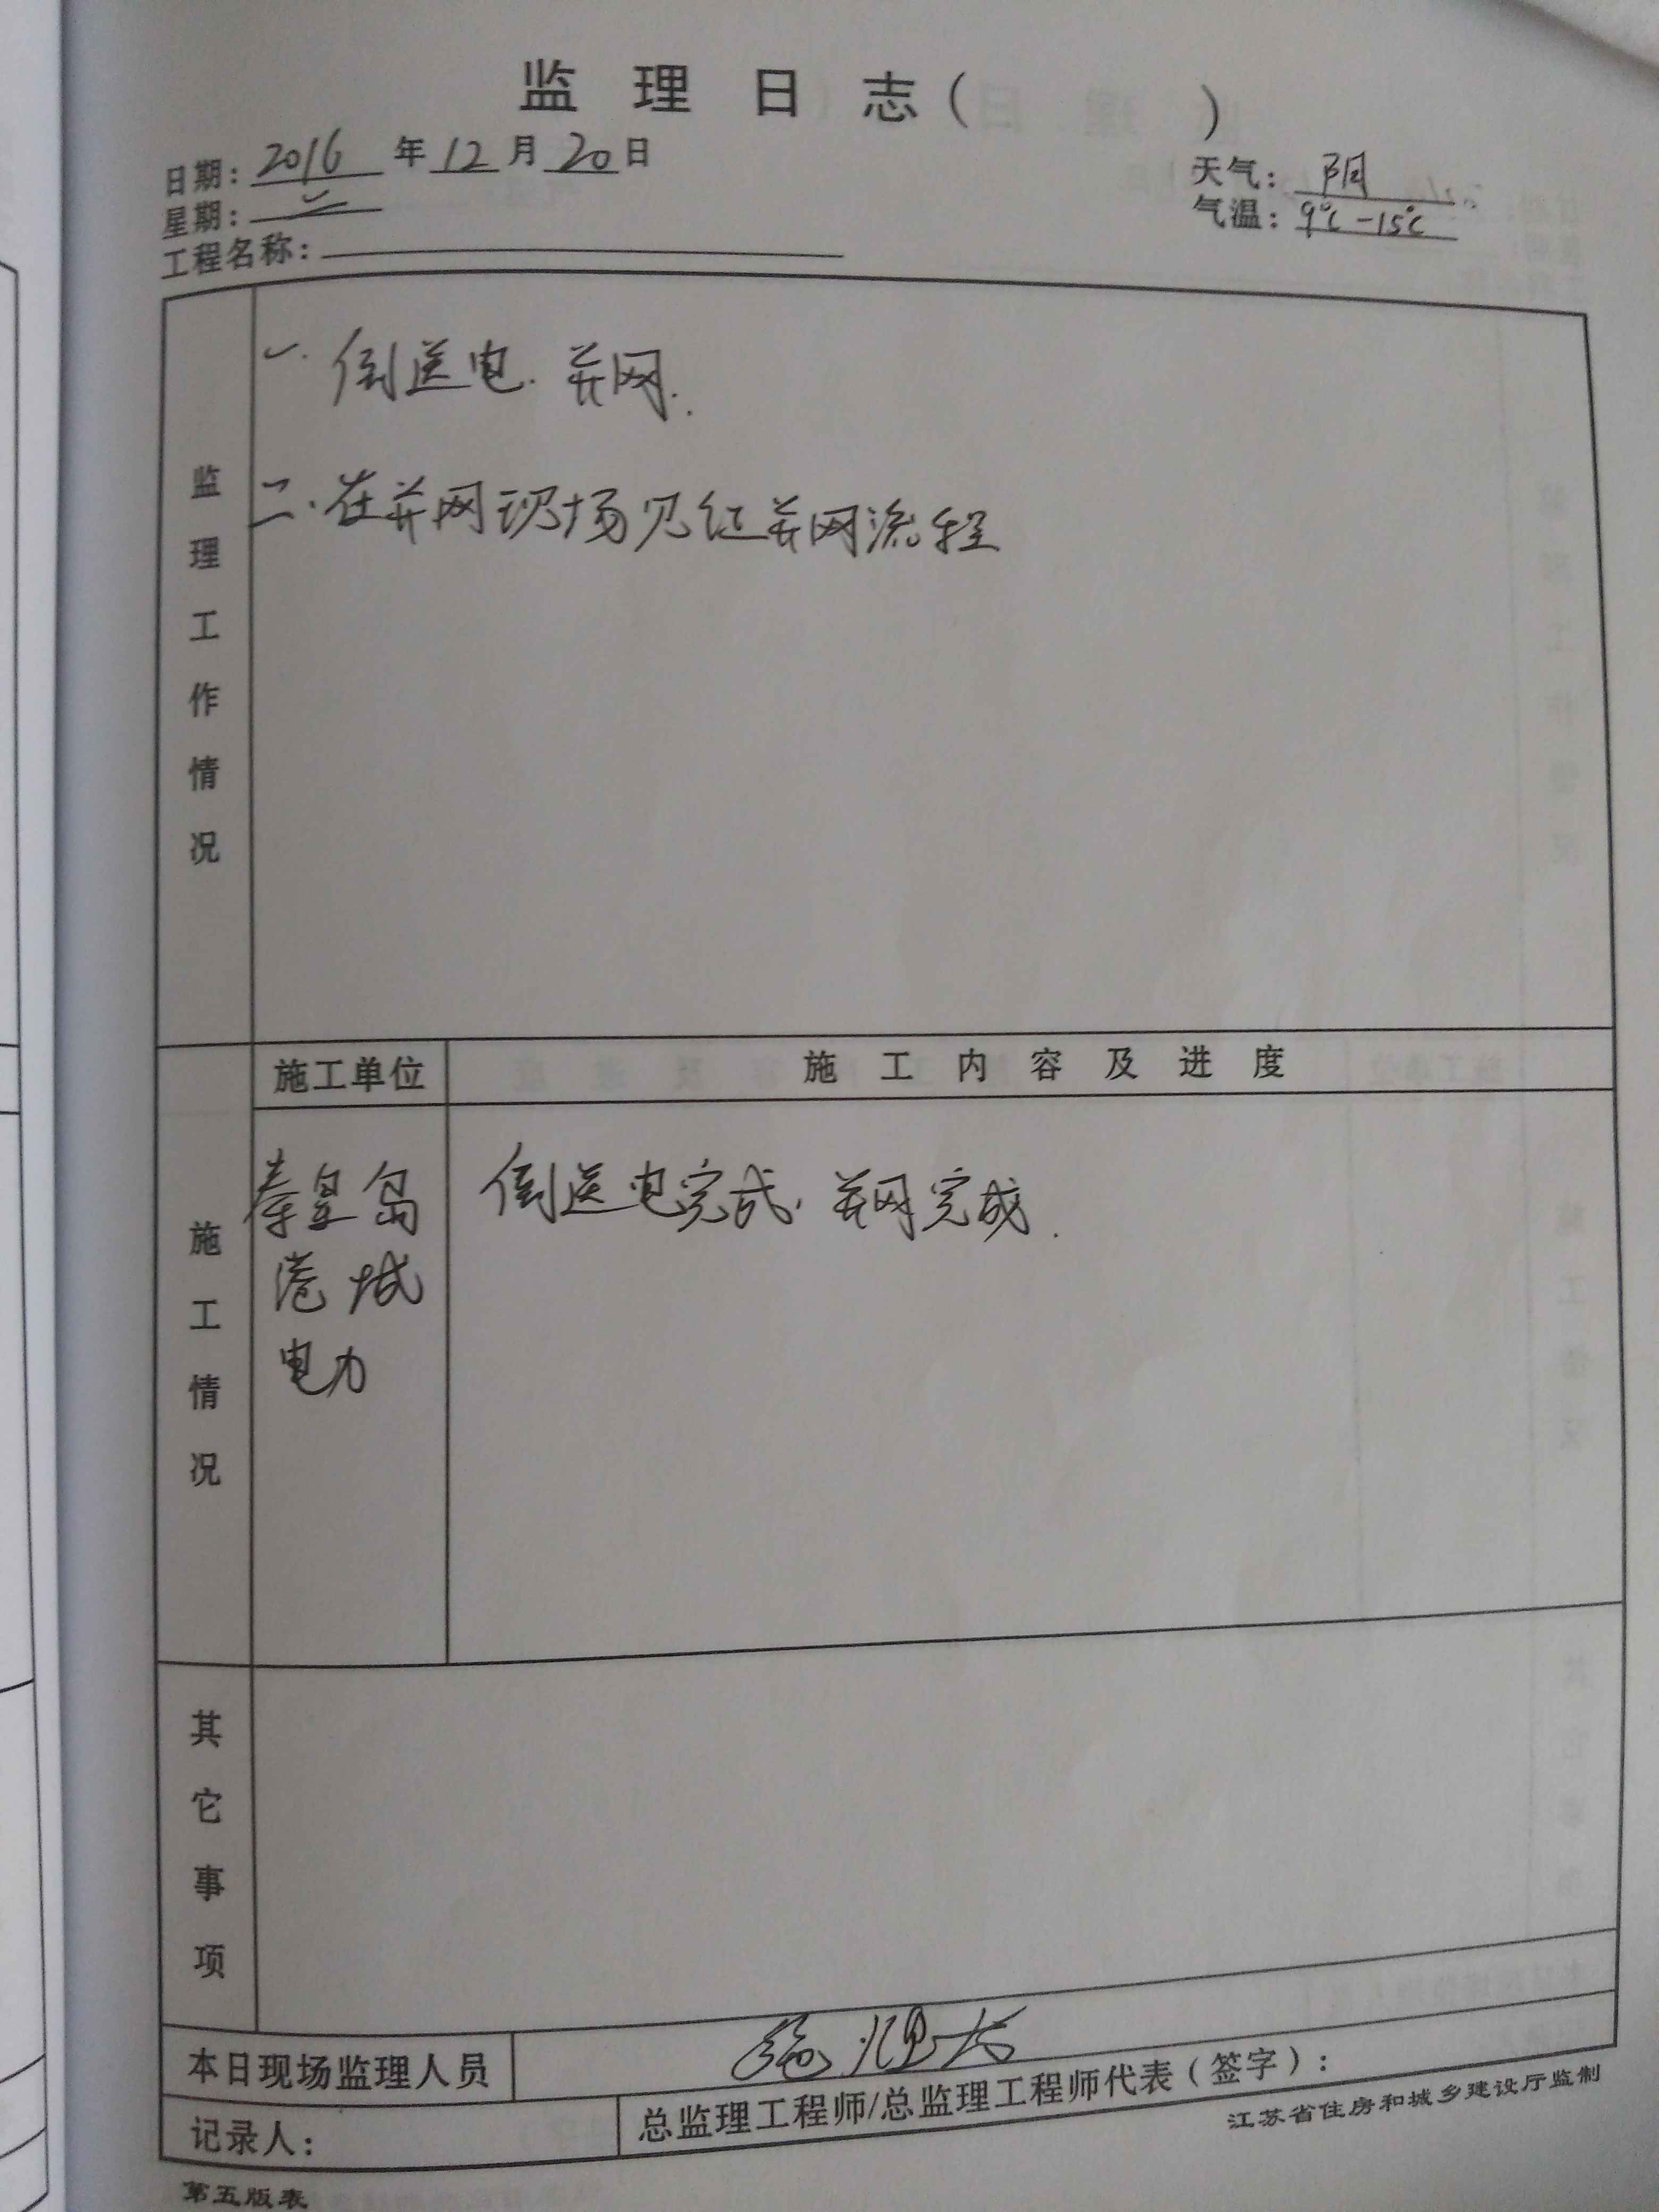 监理日志( )
日期: 2016 年 12 月 20 日
天气: 阴
星期: 二
气温: 9℃-15℃
工程名称:
监理工作情况
一. 倒送电. 并网.
二. 在并网现场见证并网流程
施工情况
施工单位
施工内容及进度
秦皇岛
港城
电力
倒送电完成. 并网完成.
其它事项
本日现场监理人员
记录人:
总监理工程师/总监理工程师代表(签字):
江苏省住房和城乡建设厅监制
第五版表